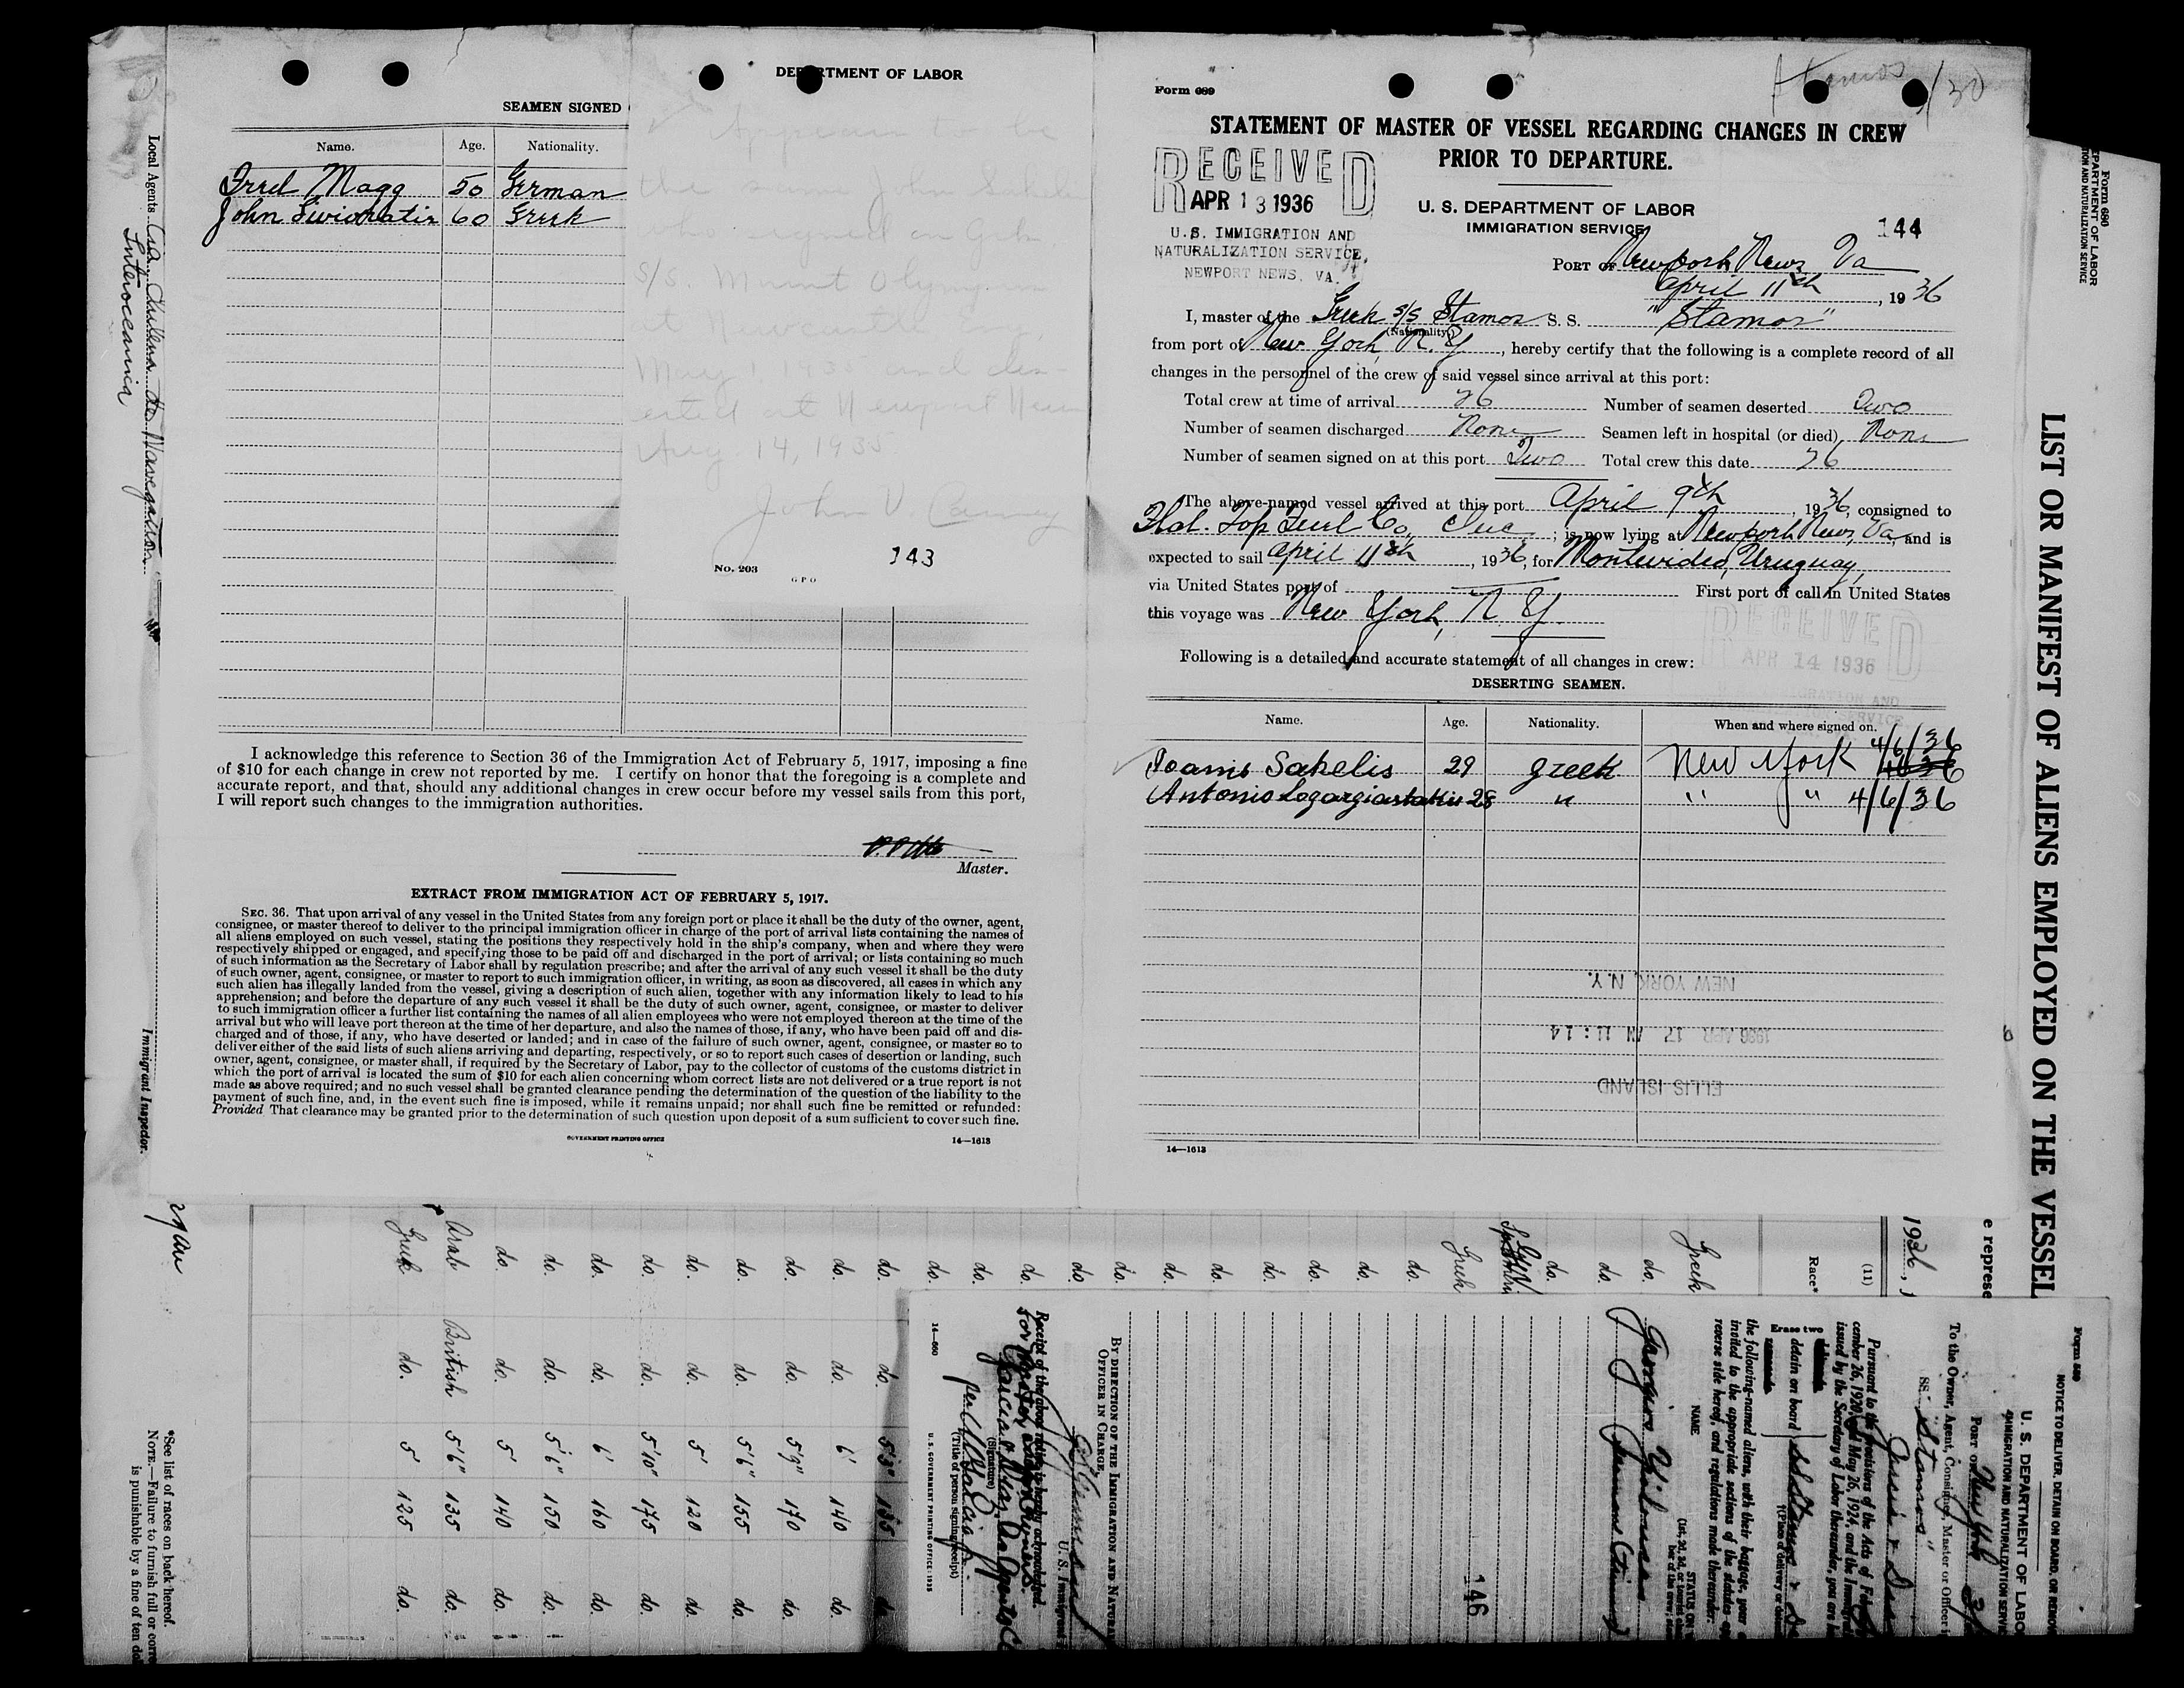 DEPARTMENT OF LABOR
SEAMEN SIGNED
Name. Age. Nationality.
Fred Magg 50 German
John 60 Greek
Appears to be
the same John
who signed on Grk
S/S. Mount Olympus
at
May 1 1935 and des-
erted at Newport News
Aug 14, 1935
John V.
No. 203
GPO
143
I acknowledge this reference to Section 36 of the Immigration Act of February 5, 1917, imposing a fine
of $10 for each change in crew not reported by me. I certify on honor that the foregoing is a complete and
accurate report, and that, should any additional changes in crew occur before my vessel sails from this port,
I will report such changes to the immigration authorities.
Master.
EXTRACT FROM IMMIGRATION ACT OF FEBRUARY 5, 1917.
SEC. 36. That upon arrival of any vessel in the United States from any foreign port or place it shall be the duty of the owner, agent,
consignee, or master thereof to deliver to the principal immigration officer in charge of the port of arrival lists containing the names of
all aliens employed on such vessel, stating the positions they respectively hold in the ship's company, when and where they were
respectively shipped or engaged, and specifying those to be paid off and discharged in the port of arrival; or lists containing so much
of such information as the Secretary of Labor shall by regulation prescribe; and after the arrival of any such vessel it shall be the duty
of such owner, agent, consignee, or master to report to such immigration officer, in writing, as soon as discovered, all cases in which any
such alien has illegally landed from the vessel, giving a description of such alien, together with any information likely to lead to his
apprehension; and before the departure of any such vessel it shall be the duty of such owner, agent, consignee, or master to deliver
to such immigration officer a further list containing the names of all alien employees who were not employed thereon at the time of the
arrival but who will leave port thereon at the time of her departure, and also the names of those, if any, who have been paid off and dis-
charged and of those, if any, who have deserted or landed; and in case of the failure of such owner, agent, consignee, or master so to
deliver either of the said lists of such aliens arriving and departing, respectively, or so to report such cases of desertion or landing, such
owner, agent, consignee, or master shall, if required by the Secretary of Labor, pay to the collector of customs of the customs district in
which the port of arrival is located the sum of $10 for each alien concerning whom correct lists are not delivered or a true report is not
made as above required; and no such vessel shall be granted clearance pending the determination of the question of the liability to the
payment of such fine, and, in the event such fine is imposed, while it remains unpaid; nor shall such fine be remitted or refunded:
Provided That clearance may be granted prior to the determination of such question upon deposit of a sum sufficient to cover such fine.
GOVERNMENT PRINTING OFFICE 14—1613
Form 689
Stamos 1/30
STATEMENT OF MASTER OF VESSEL REGARDING CHANGES IN CREW
PRIOR TO DEPARTURE.
RECEIVED
APR 13 1936
U.S. IMMIGRATION AND
NATURALIZATION SERVICE,
NEWPORT NEWS, VA.
U. S. DEPARTMENT OF LABOR
IMMIGRATION SERVICE
144
PORT OF Newport News Va
April 11th, 1936
I, master of the Greek s/s Stamos S. S. "Stamos"
(Nationality)
from port of New York, N. Y., hereby certify that the following is a complete record of all
changes in the personnel of the crew of said vessel since arrival at this port:
Total crew at time of arrival 26 Number of seamen deserted Two
Number of seamen discharged None Seamen left in hospital (or died) None
Number of seamen signed on at this port Two Total crew this date 26
The above-named vessel arrived at this port April 9th, 1936, consigned to
Flat Top Fuel Co., Inc.; is now lying at Newport News, Va, and is
expected to sail April 11th, 1936, for Montevideo, Uruguay,
via United States port of First port of call in United States
this voyage was New York, N Y.
RECEIVED
APR 14 1936
Following is a detailed and accurate statement of all changes in crew:
DESERTING SEAMEN.
Name. Age. Nationality. When and where signed on.
Ioanis Sakelis 29 greek New York 4/6/36
Antonio 28 " " " 4/6/36
NEW YORK, N.Y.
1936 APR 17 AM 11:14
ELLIS ISLAND
14—1613
Form 680
LIST OR MANIFEST OF ALIENS EMPLOYED ON THE VESSEL
Local Agents
Interoceanica
Immigrant Inspector.
*See list of races on back hereof.
NOTE.—Failure to furnish full or corre
is punishable by a fine of ten dol
1936,
e represe
(11)
Race*
Greek
do.
Arab British 5'6" 135 do.
Greek do. 5' 125 do.
do. do. 5' 140 do.
do. do. 5'6" 150 do.
do. do. 6' 160 do.
do. do. 5'10" 175 do.
do. do. 5' 120 do.
do. do. 5'6" 155 do.
do. do. 5'9" 170 do.
do. do. 6' 140 do.
NOTICE TO DELIVER, DETAIN ON BOARD, OR REMOV
U. S. DEPARTMENT OF LABO
IMMIGRATION AND NATURALIZATION SERVIC
To the Owner, Agent, Consignee, Master or Officer i
SS "Stamos"
Erase two
detain on board
the following-named aliens, with their baggage, your
invited to the appropriate sections of the statutes
reverse side hereof, and regulations made thereunder.
NAME
STATUS ON
146
BY DIRECTION OF THE IMMIGRATION AND NATURAL
OFFICER IN CHARGE.
U. S. Immigrant
Receipt of the above notice is hereby acknowledged.
(Signature)
(Title of person signing receipt)
14—560 U. S. GOVERNMENT PRINTING OFFICE: 1935